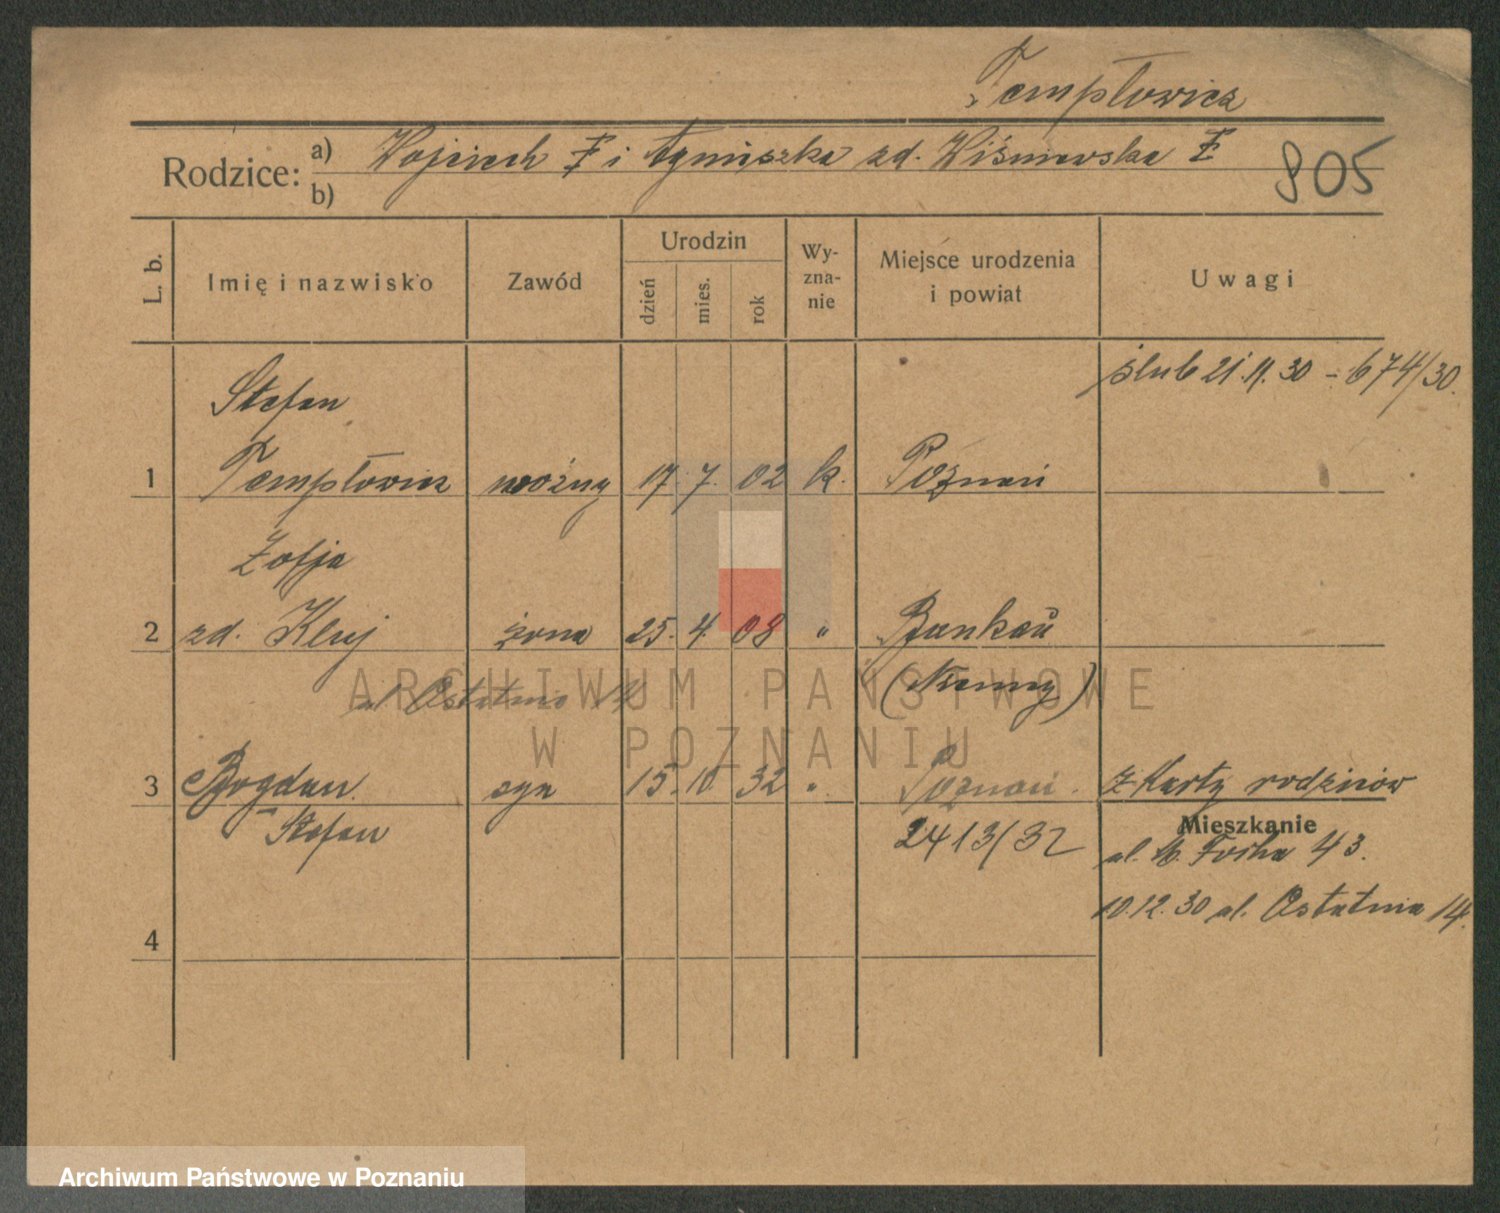 Templowicz
Rodzice: a) Wojciech i Agnieszka zd. Wiśniewska
b)
805
L. b.
Imię i nazwisko
Zawód
Urodzin
dzień
mies.
rok
Wy-
zna-
nie
Miejsce urodzenia
i powiat
Uwagi
ślub 21.11.30 – 674/30.
Stefan
1 Templowicz woźny 17. 7. 02 k. Poznań
Zofja
2 zd. Kluj żona 25. 4. 08 „ Bankau
(Niemcy)
ul. Ostatnia 14
3 Bogdan syn 15. 10. 32 „ Poznań z karty rodziców
Stefan 2413/32
Mieszkanie
ul. M. Focha 43.
10.12.30 ul. Ostatnia 14.
4
ARCHIWUM PAŃSTWOWE
W POZNANIU
Archiwum Państwowe w Poznaniu